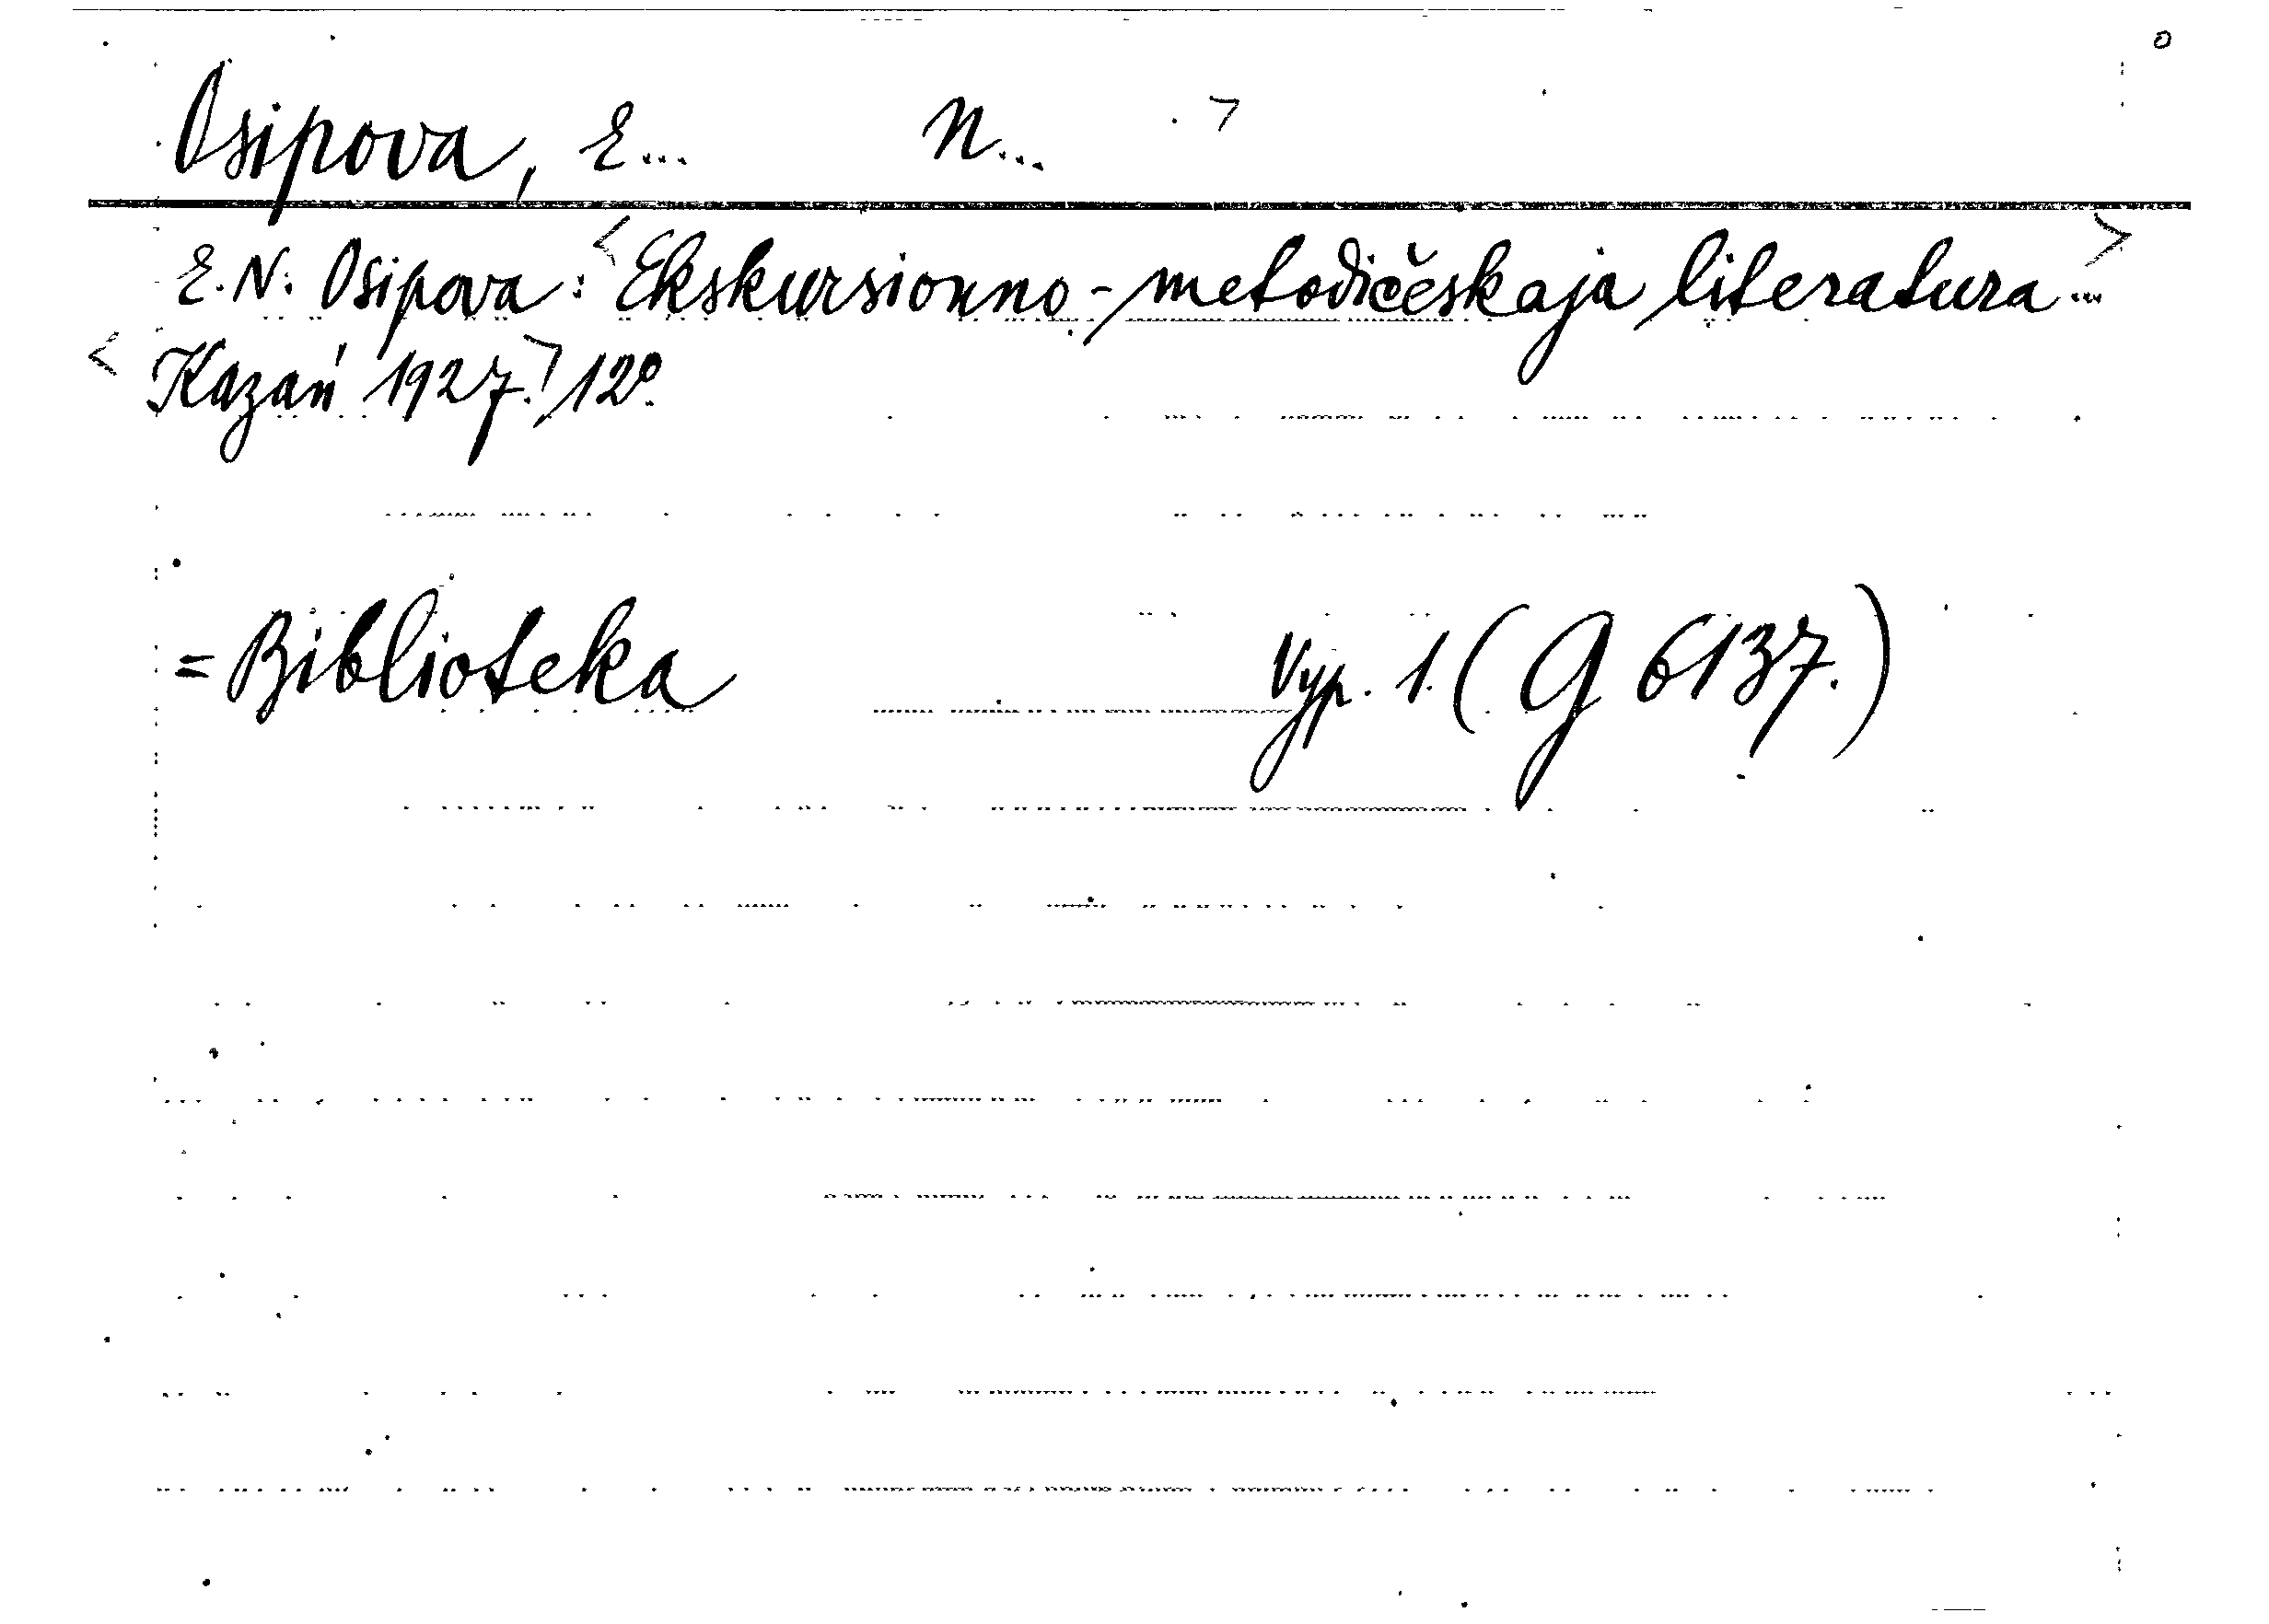 Osipova, E... N... >
E. N. Osipova: <Ekskursionno-metodičeskaja literatura...>
<Kazań 1927.> 12°.
= Biblioteka Vyp. 1. (G 6137.)